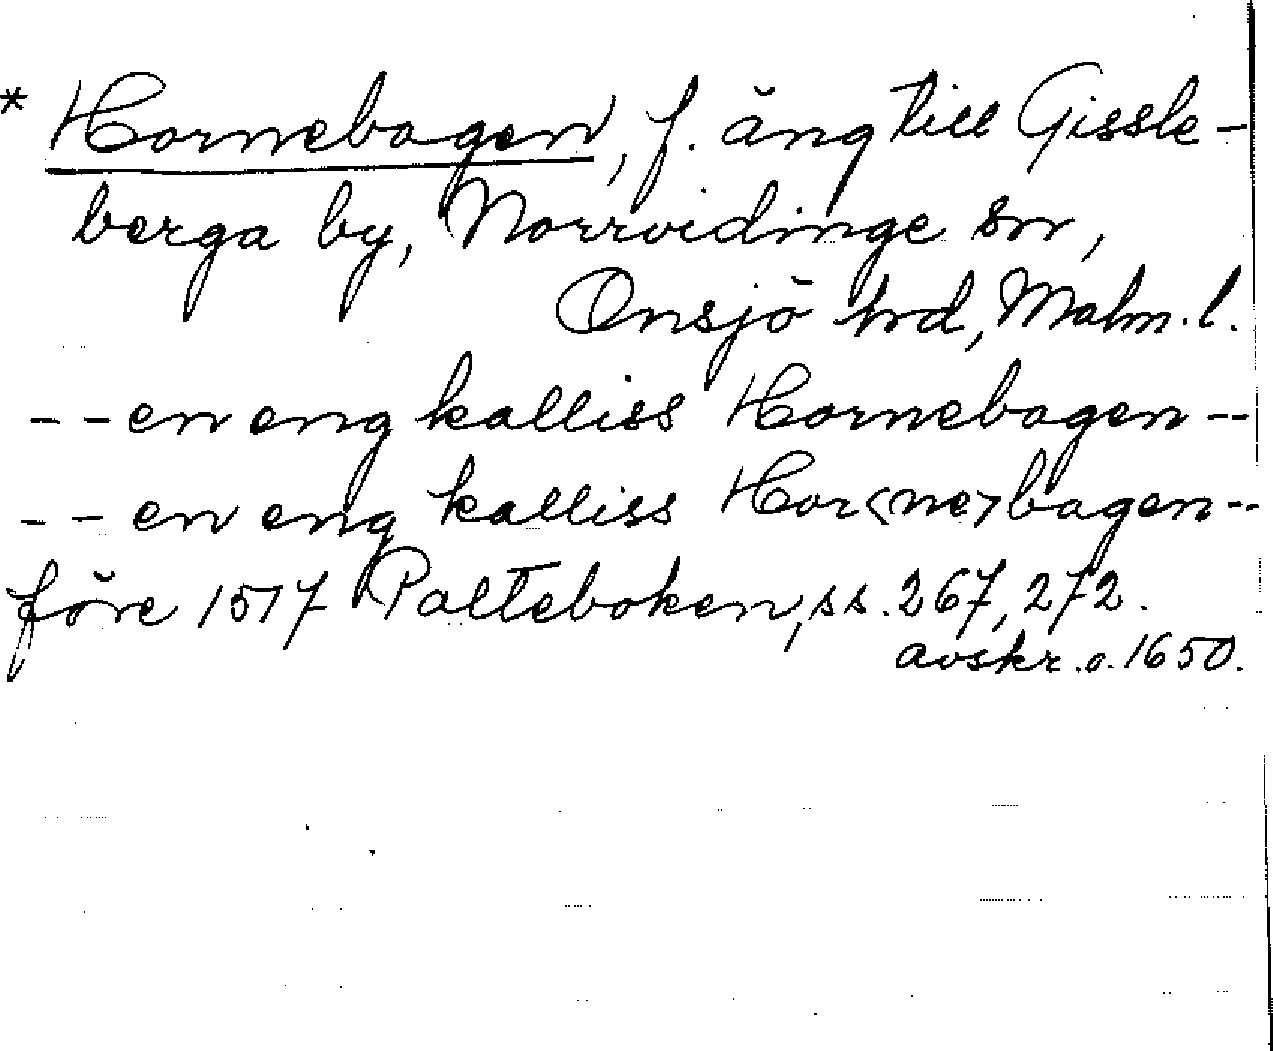 * Hornebagen, f. äng till Gissle-
berga by, Norrvidinge sn,
Onsjö hrd, Malm. l.
-- en eng kalliss Hornebagen --
-- en eng kalliss Hor<ne>bagen --
före 1517 Palteboken, ss. 267, 272.
avskr. o. 1650.